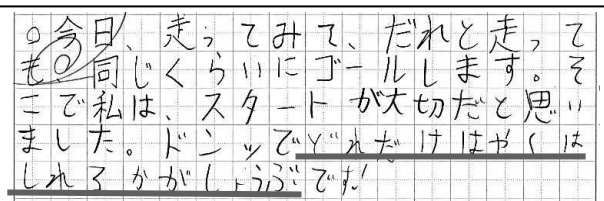 ○今日、走ってみて、だれと走って
も、同じくらいにゴールします。そ
こで私は、スタートが大切だと思い
ました。ドンッでどれだけはやくは
しれるかがしょうぶです!